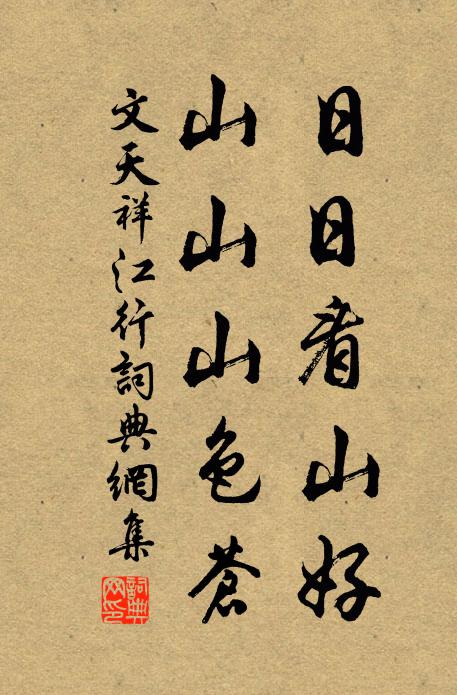 日日看山好
山山山色苍
文天祥江行詞典網集
詞典
网印